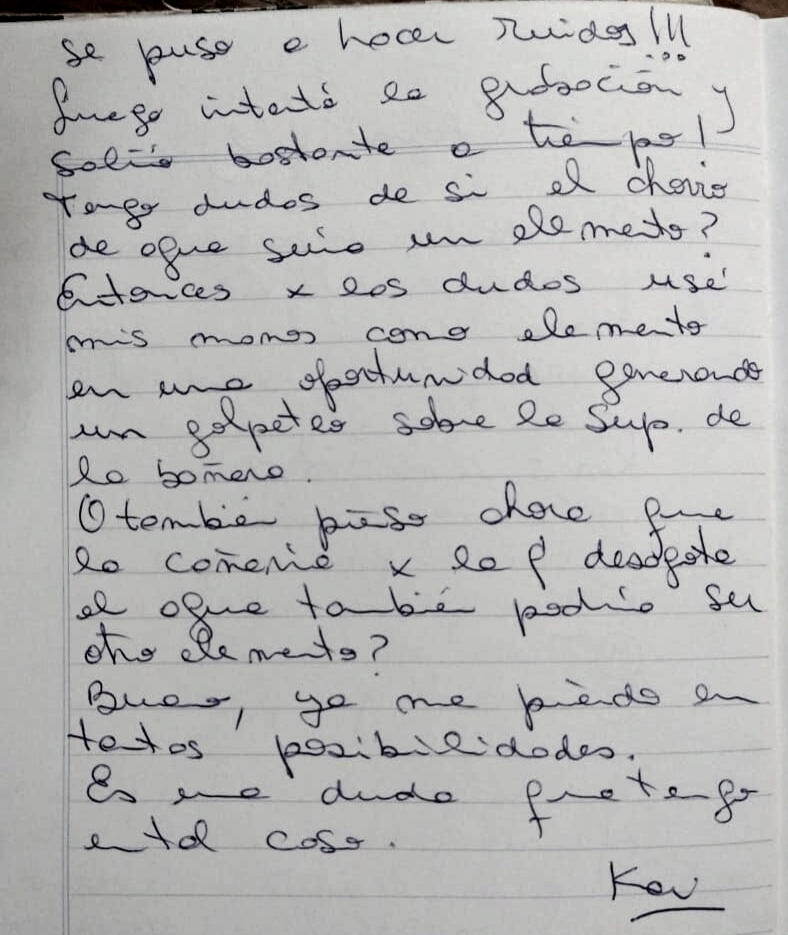 se puso a hacer ruidos!!!
Luego intenté la grabación y
salió bastante a tiempo!
Tengo dudas de si el chorro
de agua sería un elemento?
Entonces x las dudas usé
mis manos como elemento
en una oportunidad generando
un golpeteo sobre la Sup. de
la bañera.
O también pienso ahora que
la cañería x la q' desagota
el agua también podría ser
otro elemento?
Bueno, ya me pierdo en
tantas posibilidades.
Es una duda que tengo
en tal caso.
Kari